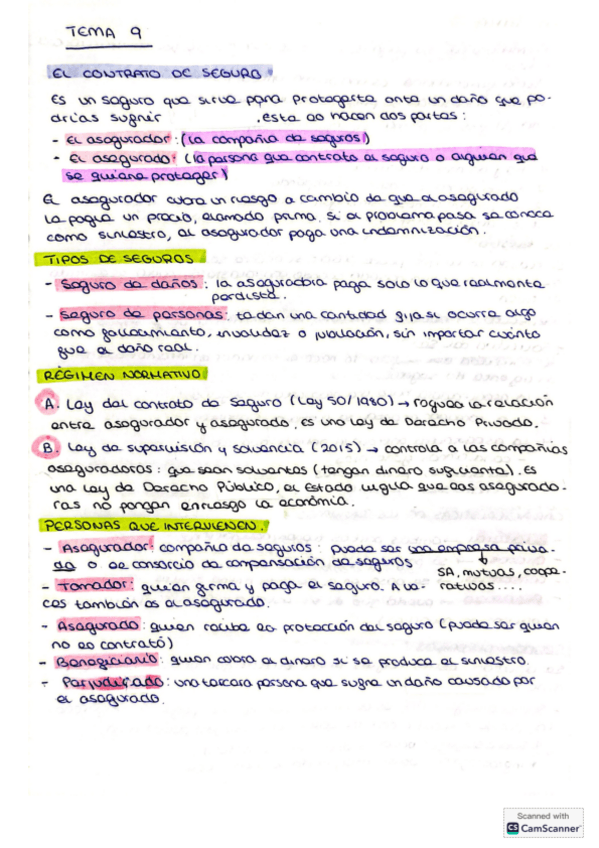 TEMA 9
EL CONTRATO DE SEGURO
Es un seguro que sirve para protegerte ante un daño que po-
drías sufrir , esta lo hacen dos partes:
- El asegurador: (la compañía de seguros)
- El asegurado: (la persona que contrata el seguro o alguien que
se quiere proteger)
El asegurador cubre un riesgo a cambio de que el asegurado
le pague un precio, llamado prima. Si el problema pasa se conoce
como siniestro, el asegurador paga una indemnización.
TIPOS DE SEGUROS
- Seguro de daños: la aseguradora paga solo lo que realmente
perdiste.
- Seguro de personas: te dan una cantidad fija si ocurre algo
como fallecimiento, invalidez o jubilación, sin importar cuánto
fue el daño real.
RÉGIMEN NORMATIVO
A. Ley del contrato de seguro (Ley 50/1980) → regula la relación
entre asegurador y asegurado. Es una ley de Derecho Privado.
B. Ley de supervisión y solvencia (2015) → controla a las compañías
aseguradoras: que sean solventes (tengan dinero suficiente). Es
una Ley de Derecho Público, el Estado vigila que las asegurado-
ras no pongan en riesgo la economía.
PERSONAS QUE INTERVIENEN.
- Asegurador: compañía de seguros: puede ser una empresa priva-
da o el consorcio de compensación de seguros.
↓
SA, mutuas, coope-
rativas....
- Tomador: quien firma y paga el seguro. A ve-
ces también es el asegurado.
- Asegurado: quien recibe la protección del seguro (puede ser quien
no lo contrató)
- Beneficiario: quien cobra el dinero si se produce el siniestro.
- Perjudicado: una tercera persona que sufre un daño causado por
el asegurado.
Scanned with
CS CamScanner